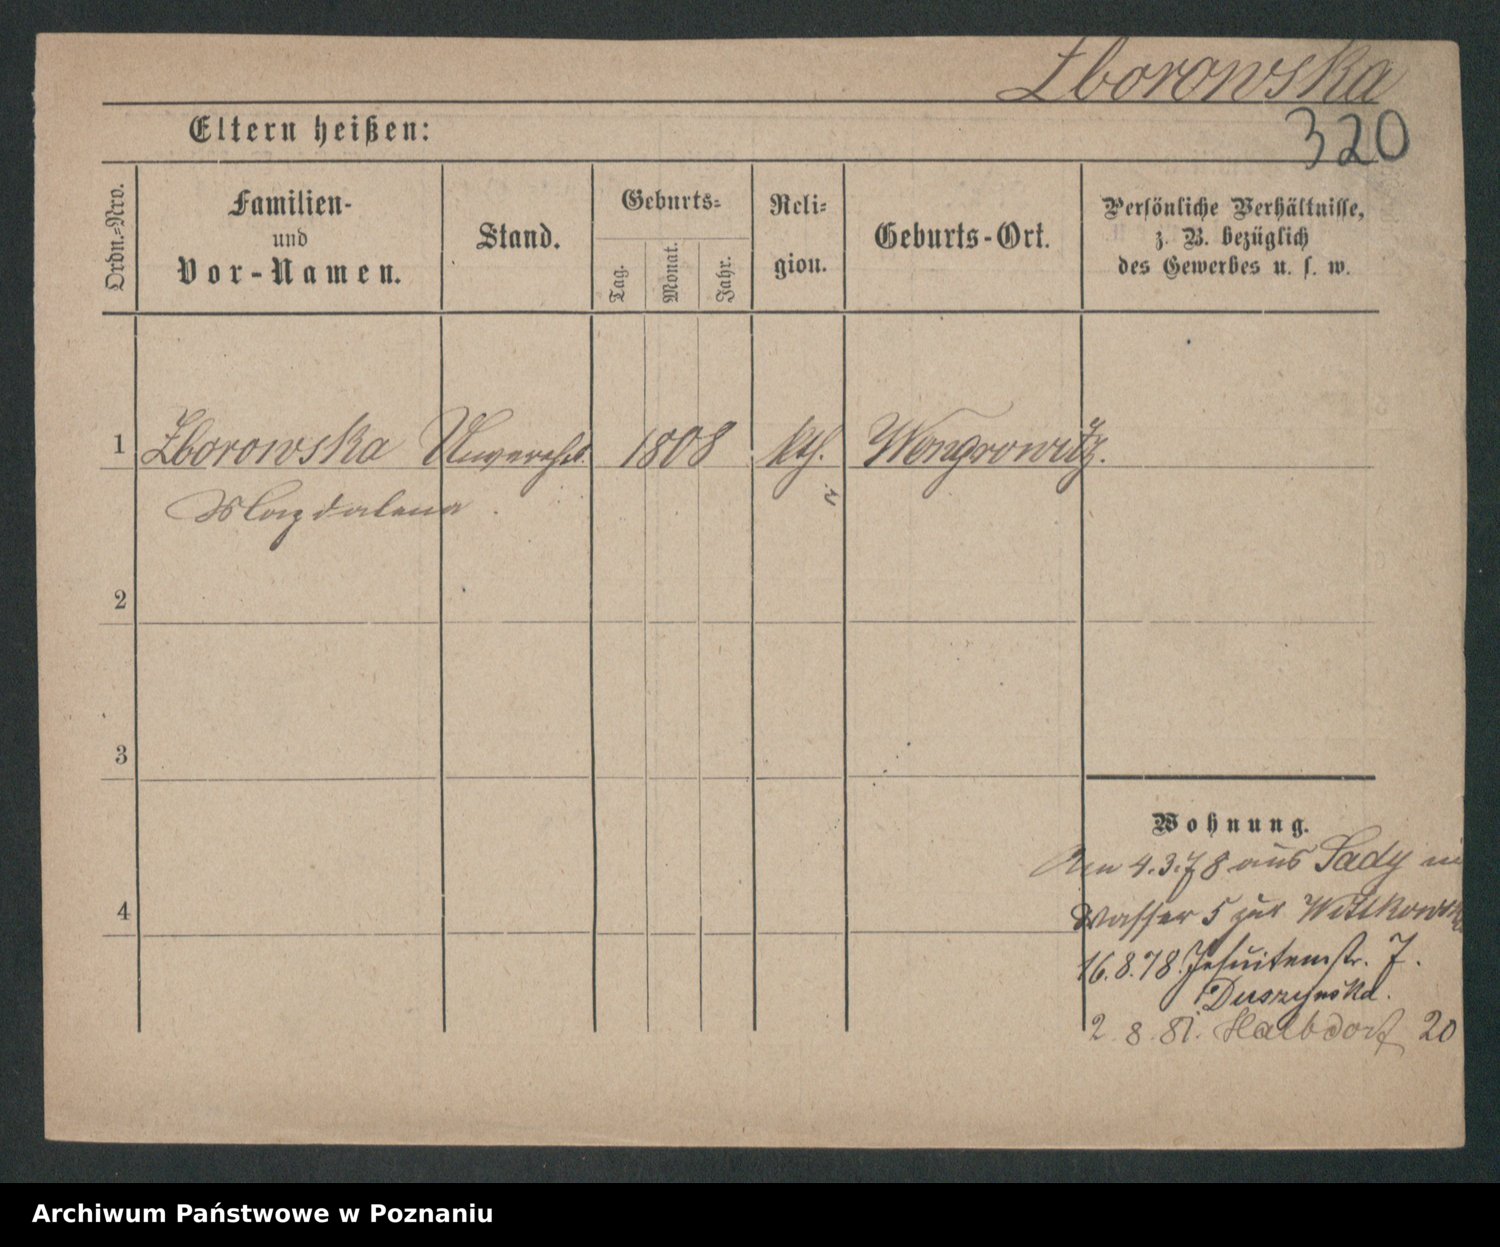 Zborowska
320
Eltern heißen:
Ordn.-Nro.
Familien-
und
Vor-Namen.
Stand.
Geburts-
Tag.
Monat.
Jahr.
Reli-
gion.
Geburts-Ort.
Persönliche Verhältnisse,
z. B. bezüglich
des Gewerbes u. s. w.
1 Zborowska Unverehel. 1808 kth. Wongrowitz.
Magdalena
2
3
4
Wohnung.
Am 4.3.78 aus Sady in
Wasser 5 zur Wittkowsk
16.8.78. Jesuitenstr. 7.
Duszynska.
2.8.81. Halbdorf 20
Archiwum Państwowe w Poznaniu